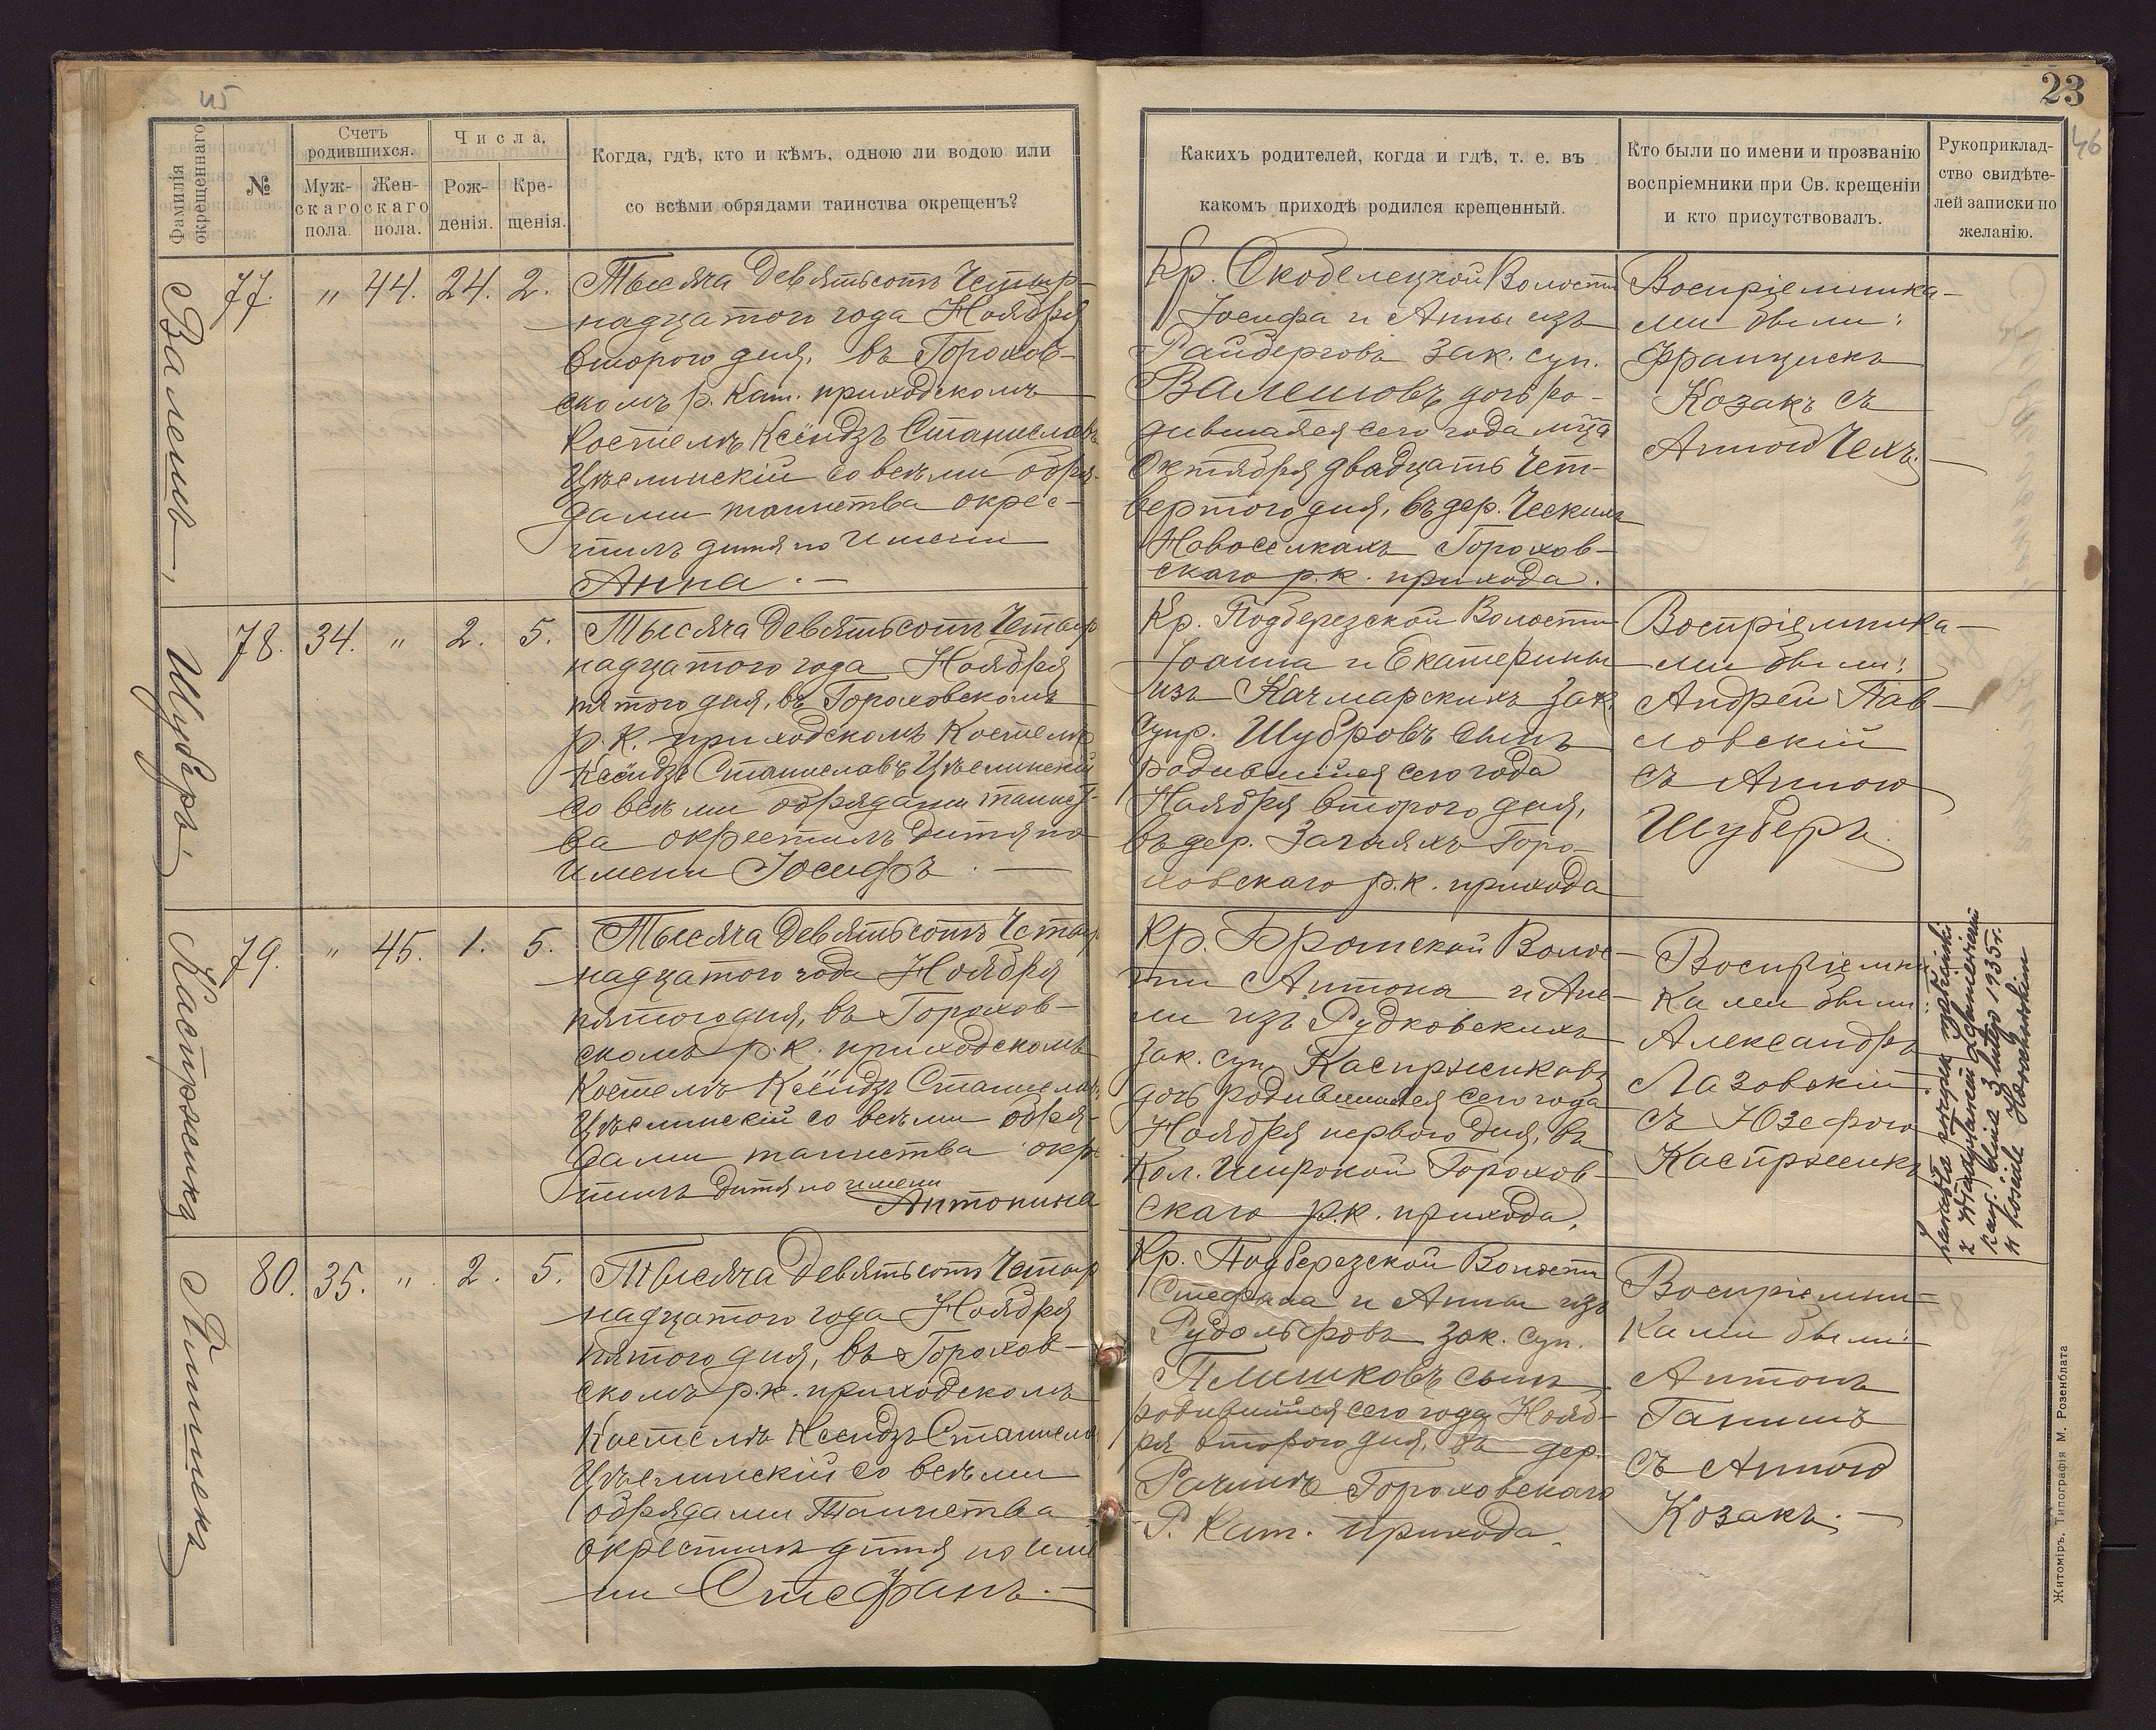 45
23
46
Фамилія окрещеннаго
№
Счетъ родившихся.
Муж-
скаго
пола.
Жен-
скаго
пола.
Числа,
Рож-
денія.
Кре-
щенія.
Когда, гдѣ, кто и кѣмъ, одною ли водою или
со всѣми обрядами таинства окрещенъ?
Какихъ родителей, когда и гдѣ, т. е. въ
какомъ приходѣ родился крещенный.
Кто были по имени и прозванію
воспріемники при Св. крещеніи
и кто присутствовалъ.
Рукоприклад-
ство свидѣте-
лей записки по
желанію.
77. " 44. 24. 2.
Тысяча девятьсотъ четыр-
надцатого года Ноября
второго дня, въ Горохов-
скомъ р. Кат. приходскомъ
Костелѣ Ксёндзъ Станиславъ
Цѣслинскій со всѣми обря-
дами таинства окрес-
тилъ дитя по имени
Анна.—
Кр. Скобелецкой Волости
Іосифа и Анны изъ
Райберговъ зак. суп.
Валешовъ дочь ро-
дившаяся сего года мца
Октября двадцать чет-
вертого дня, въ дер. Ческихъ
Новоселкахъ Горохов-
скаго р.к. прихода.
Воспріемника-
ми были:
Францискъ
Козакъ съ
Анною Чехъ.
78. 34. " 2. 5.
Шуберъ
Тысяча девятьсотъ четыр
надцатого года Ноября
пятого дня, въ Гороховскомъ
р. к. приходскомъ Костелѣ
Ксёндзъ Станиславъ Цѣслинскій
со всѣми обрядами таинст-
ва окрестилъ дитя по
имени Іосифъ.—
Кр. Подберезской Волости
Іоанна и Екатерины
изъ Качмарскихъ зак.
супр. Шубровъ сынъ
родившійся сего года
Ноября второго дня,
въ дер. Горо-
ховскаго р.к. прихода
Воспріемника-
ми были:
Андрей Пав-
ловскій
съ Анною
Шуберъ.
79. " 45. 1. 5.
Каспржикъ
Тысяча девятьсотъ четыр
надцатого года Ноября
пятого дня, въ Горохов-
скомъ р.к. приходскомъ
Костелѣ Ксёндзъ Станиславъ
Цѣслинскій со всѣми обря-
дами таинства окр
тилъ дитя по имени
Антонина
Кр. Волос-
ти Антона и Ане-
ли изъ Рудковскихъ
зак. суп. Каспржиковъ
дочь родившаяся сего года
Ноября первого дня, въ
Кол. Широкой Горохов-
скаго р.к. прихода.
Воспріемни-
ками были:
Александръ
Лазовскій
съ Юзефою
Каспржикъ
z
3 lutego 1935 r.
w kościele
80. 35. " 2. 5.
Тысяча девятьсотъ четыр
надцатого года Ноября
пятого дня, въ Горохов-
скомъ р.к. приходскомъ
Костелѣ Ксендзъ Станислав
Цѣслинскій со всѣми
обрядами Таинства
окрестилъ дитя по име
ни Стефанъ.—
Кр. Подберезской Волости
Стефана и Анны изъ
Рудольфовъ зак. суп.
сынъ
родившійся сего года Нояб-
ря второго дня, въ дер.
Рачинѣ Гороховскаго
Р. Кат. прихода.
Воспріемни-
ками были:
Антонъ
съ Анною
Козакъ.—
Житоміръ. Типографія М. Розенблата